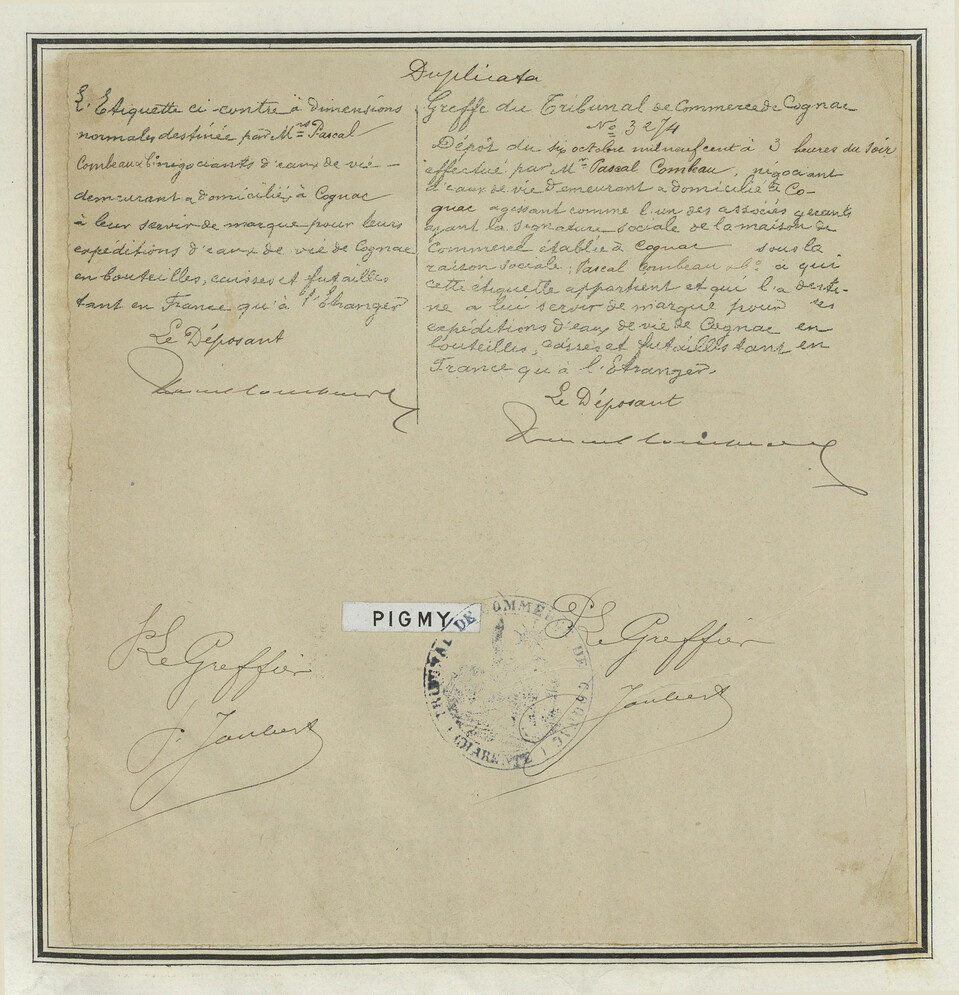 Duplicata
L'Etiquette ci-contre à dimensions
normales destinée par M.rs Pascal
Combeau & Cie négociants d'eaux de vie
demeurant & domiciliés à Cognac
à leur servir de marque pour leurs
expéditions d'eaux de vie de Cognac
en bouteilles, caisses et futailles
tant en France qu'à l'Etranger
Le Déposant
Pascal Combeau & Cie
Greffe du Tribunal de Commerce de Cognac
No 3274
Dépôt du six octobre mil neuf cent à 3 heures du soir
effectué par M.r Pascal Combeau, négociant
d'eaux de vie demeurant & domicilié à Co-
gnac agissant comme l'un des associés gérants
ayant la signature sociale de la maison de
Commerce établie à Cognac sous la
raison sociale : Pascal Combeau & Cie à qui
cette étiquette appartient et qui l'a desti-
né à lui servir de marque pour ses
expéditions d'eaux de vie de Cognac en
bouteilles, caisses et futailles tant en
France qu'à l'Etranger.
Le Déposant
PIGMY
TRIBUNAL DE COMMERCE DE COGNAC
(CHARENTE)
Le Greffier
J. Joubert
Le Greffier
Joubert